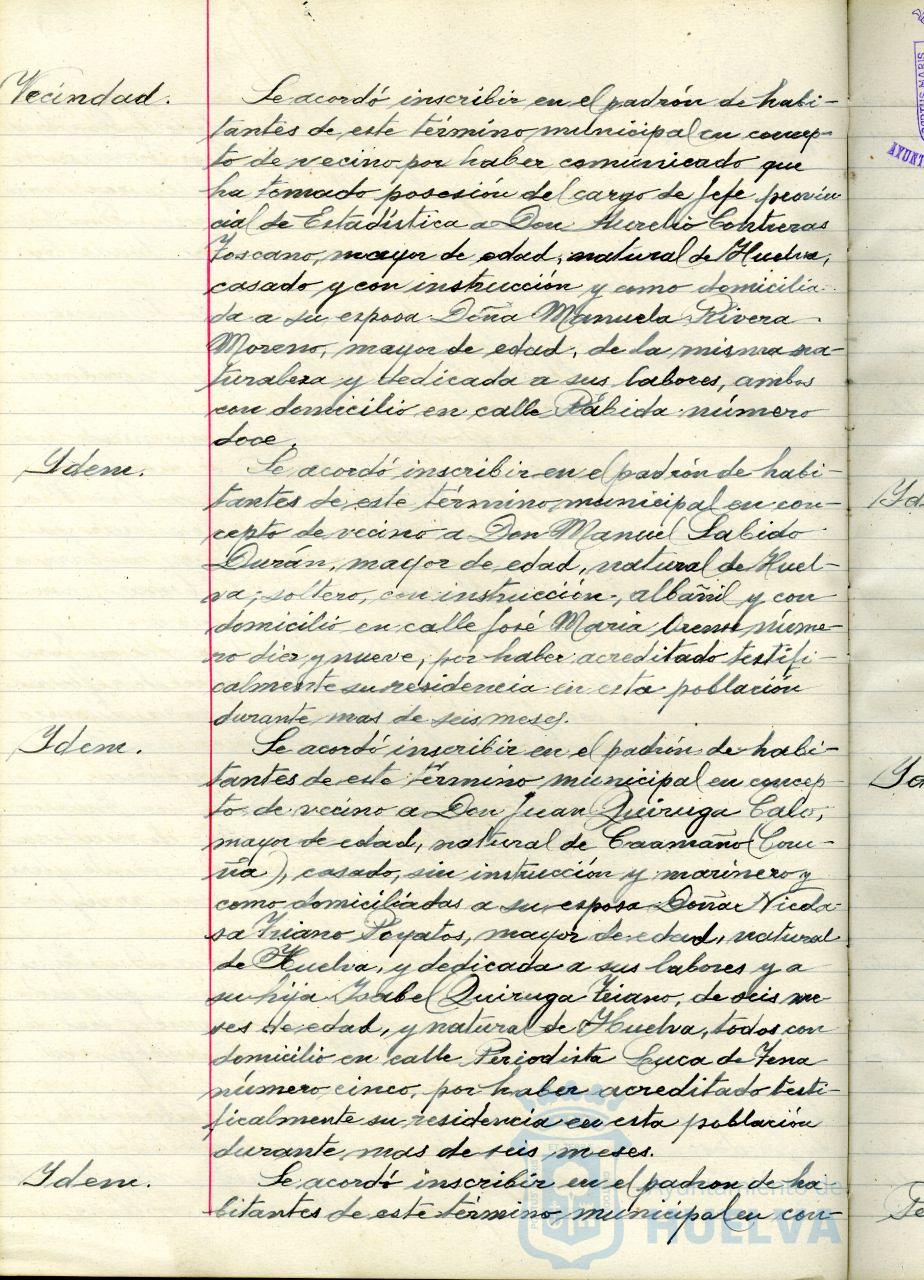 Vecindad.
Se acordó inscribir en el padrón de habi-
tantes de este término municipal en concep-
to de vecino por haber comunicado que
ha tomado posesión del cargo de Jefe provin
cial de Estadística a Don Aurelio Contreras
Toscano, mayor de edad, natural de Huelva,
casado y con instrucción y como domicilia-
da a su esposa Doña Manuela Rivera
Moreno, mayor de edad, de la misma na-
turaleza y dedicada a sus labores, ambos
con domicilio en calle Rábida número
doce.
Ydem.
Se acordó inscribir en el padrón de habi-
tantes de este término municipal en con-
cepto de vecino a Don Manuel Sabido
Durán, mayor de edad, natural de Huel-
va, soltero, con instrucción, albañil y con
domicilio en calle José Maria Orense núme-
ro diez y nueve, por haber acreditado testifi-
calmente su residencia en esta población
durante mas de seis meses.
Ydem.
Se acordó inscribir en el padrón de habi-
tantes de este término municipal en concep-
to de vecino a Don Juan Quiruga Calo,
mayor de edad, natural de Caamaño (Coru-
ña), casado, sin instrucción y marinero y
como domiciliadas a su esposa Doña Nicola-
sa Triano Poyatos, mayor de edad, natural
de Huelva, y dedicada a sus labores y a
su hija Isabel Quiruga Triano, de seis me-
ses de edad, y natural de Huelva, todos con
domicilio en calle Periodista Luca de Tena
número cinco, por haber acreditado testi-
ficalmente su residencia en esta población
durante mas de seis meses.
Ydem.
Se acordó inscribir en el padron de ha
bitantes de este término municipal en con-
Ayuntamiento de
HUELVA